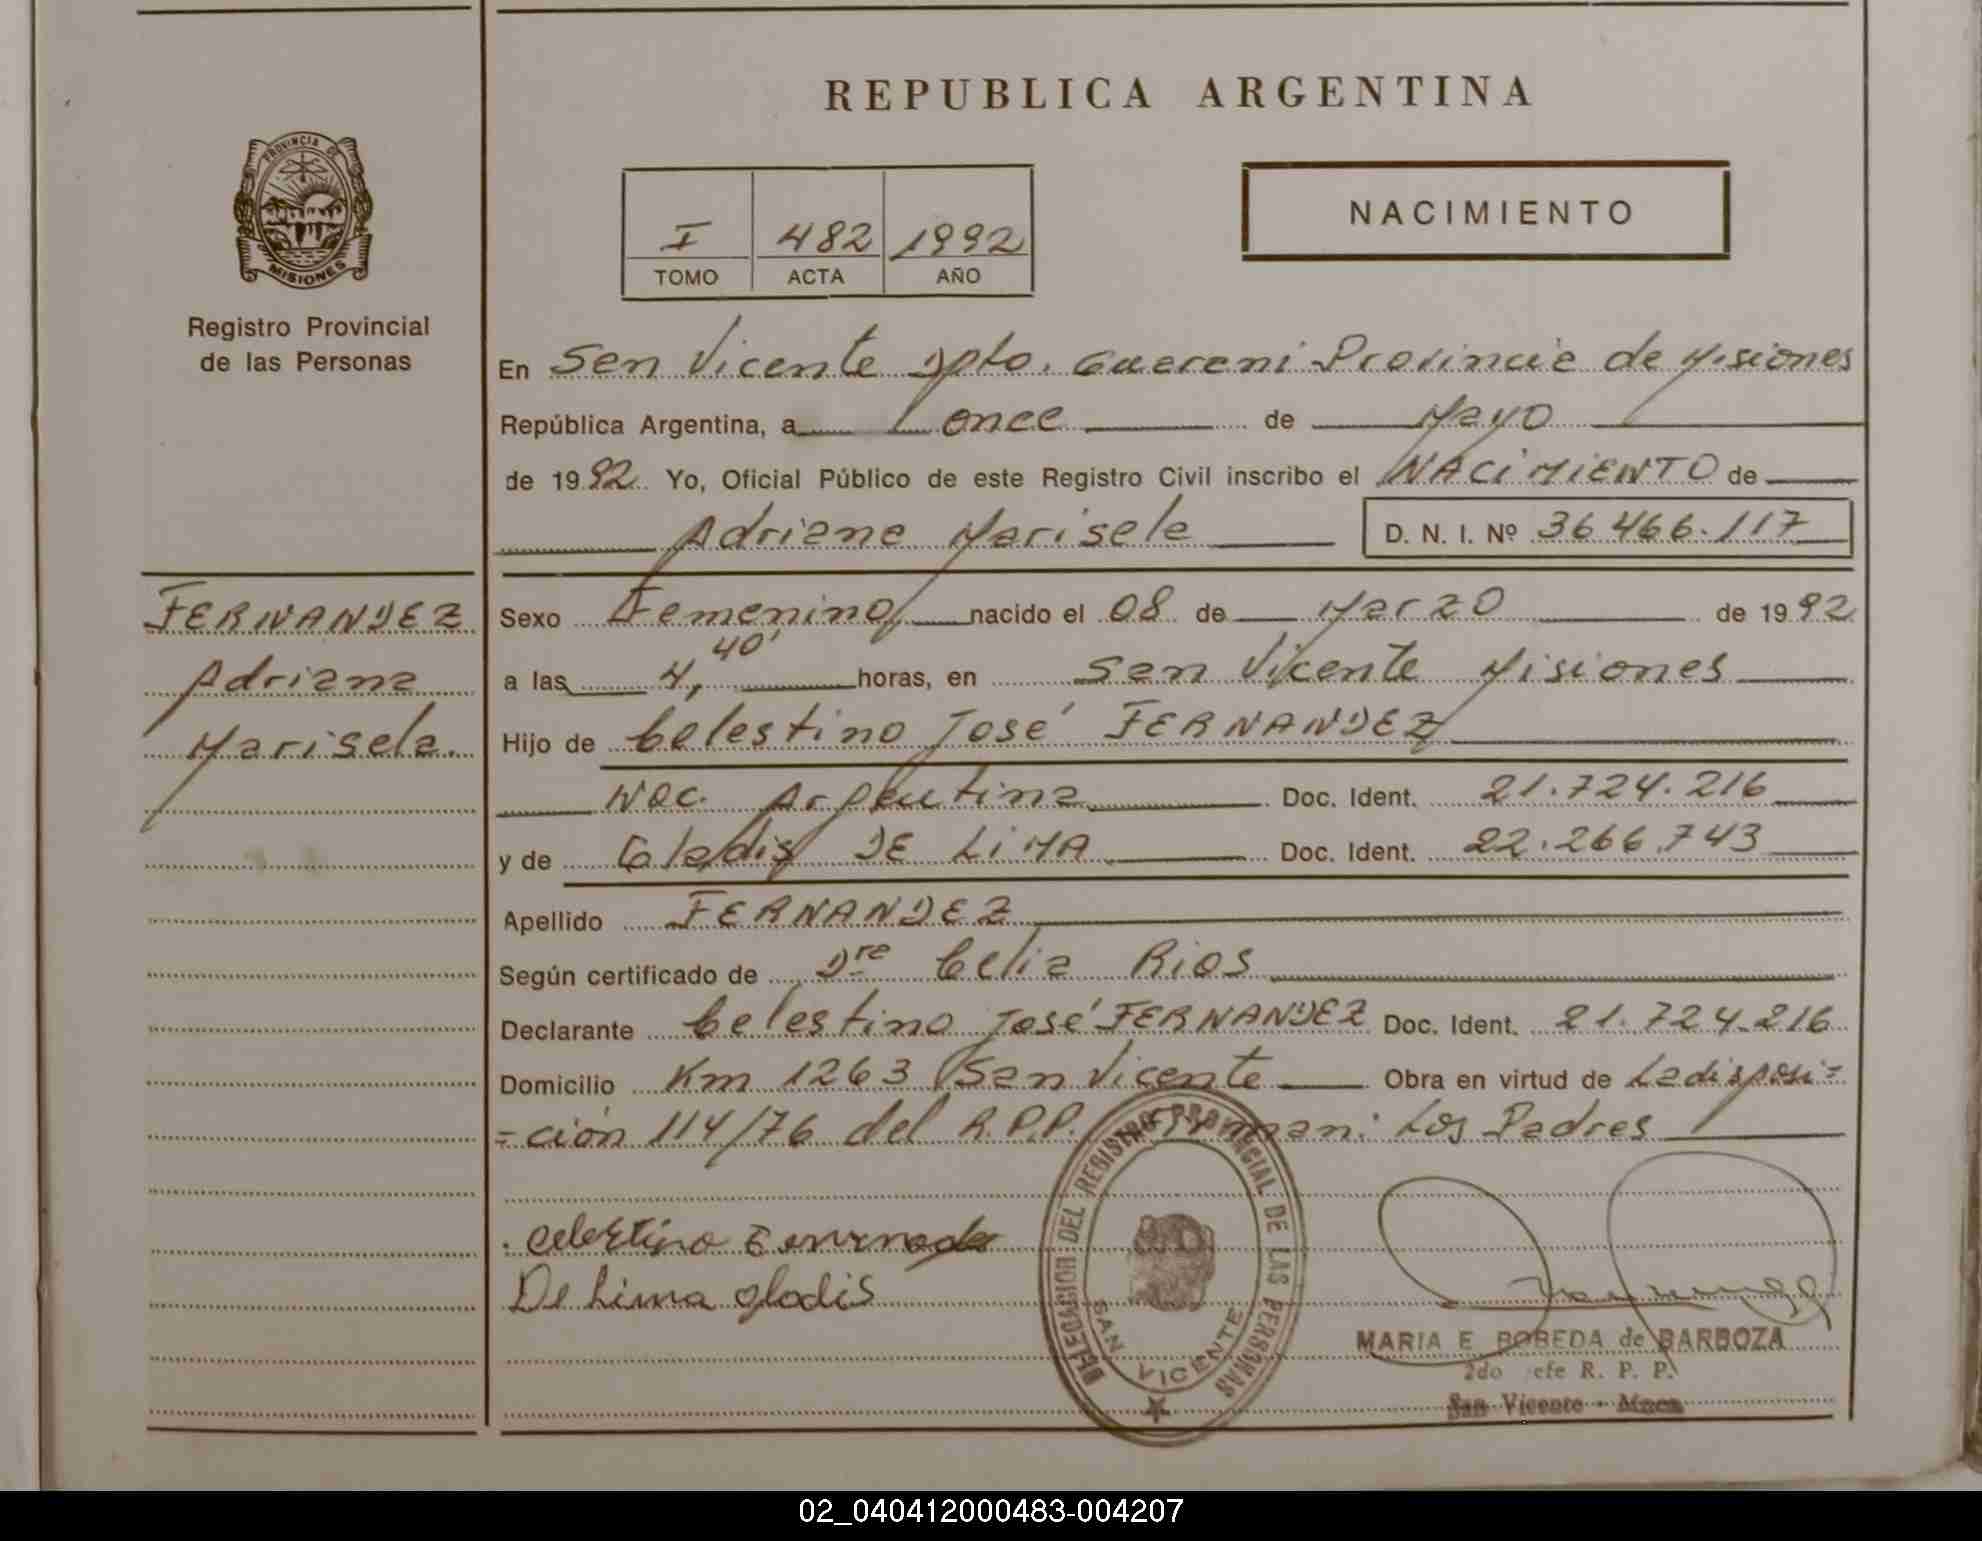 REPUBLICA ARGENTINA
PROVINCIA DE
MISIONES
Registro Provincial
de las Personas
I 482 1992
TOMO ACTA AÑO
NACIMIENTO
En San Vicente Dpto. Guarani Provincia de Misiones
República Argentina, a once de Mayo
de 1992 Yo, Oficial Público de este Registro Civil inscribo el NACIMIENTO de
Adriana Marisela D. N. I. Nº 36.466.117
FERNANDEZ
Adriana
Marisela.
Sexo Femenino nacido el 08 de Marzo de 1992
a las 4, 40' horas, en San Vicente Misiones
Hijo de Celestino José FERNANDEZ
Nac. Argentina Doc. Ident. 21.724.216
y de Gladis DE LIMA Doc. Ident. 22.266.743
Apellido FERNANDEZ
Según certificado de Dra Celia Rios
Declarante Celestino José FERNANDEZ Doc. Ident. 21.724.216
Domicilio Km 1263 San Vicente Obra en virtud de La disposi=
=ción 114/76 del R.P.P. Los Padres
Celestino
De Lima gladis
DELEGACION DEL REGISTRO PROVINCIAL DE LAS PERSONAS
SAN VICENTE
MARIA E. BOBEDA de BARBOZA
2do efe R. P. P.
San Vicente - Mnes
02_040412000483-004207